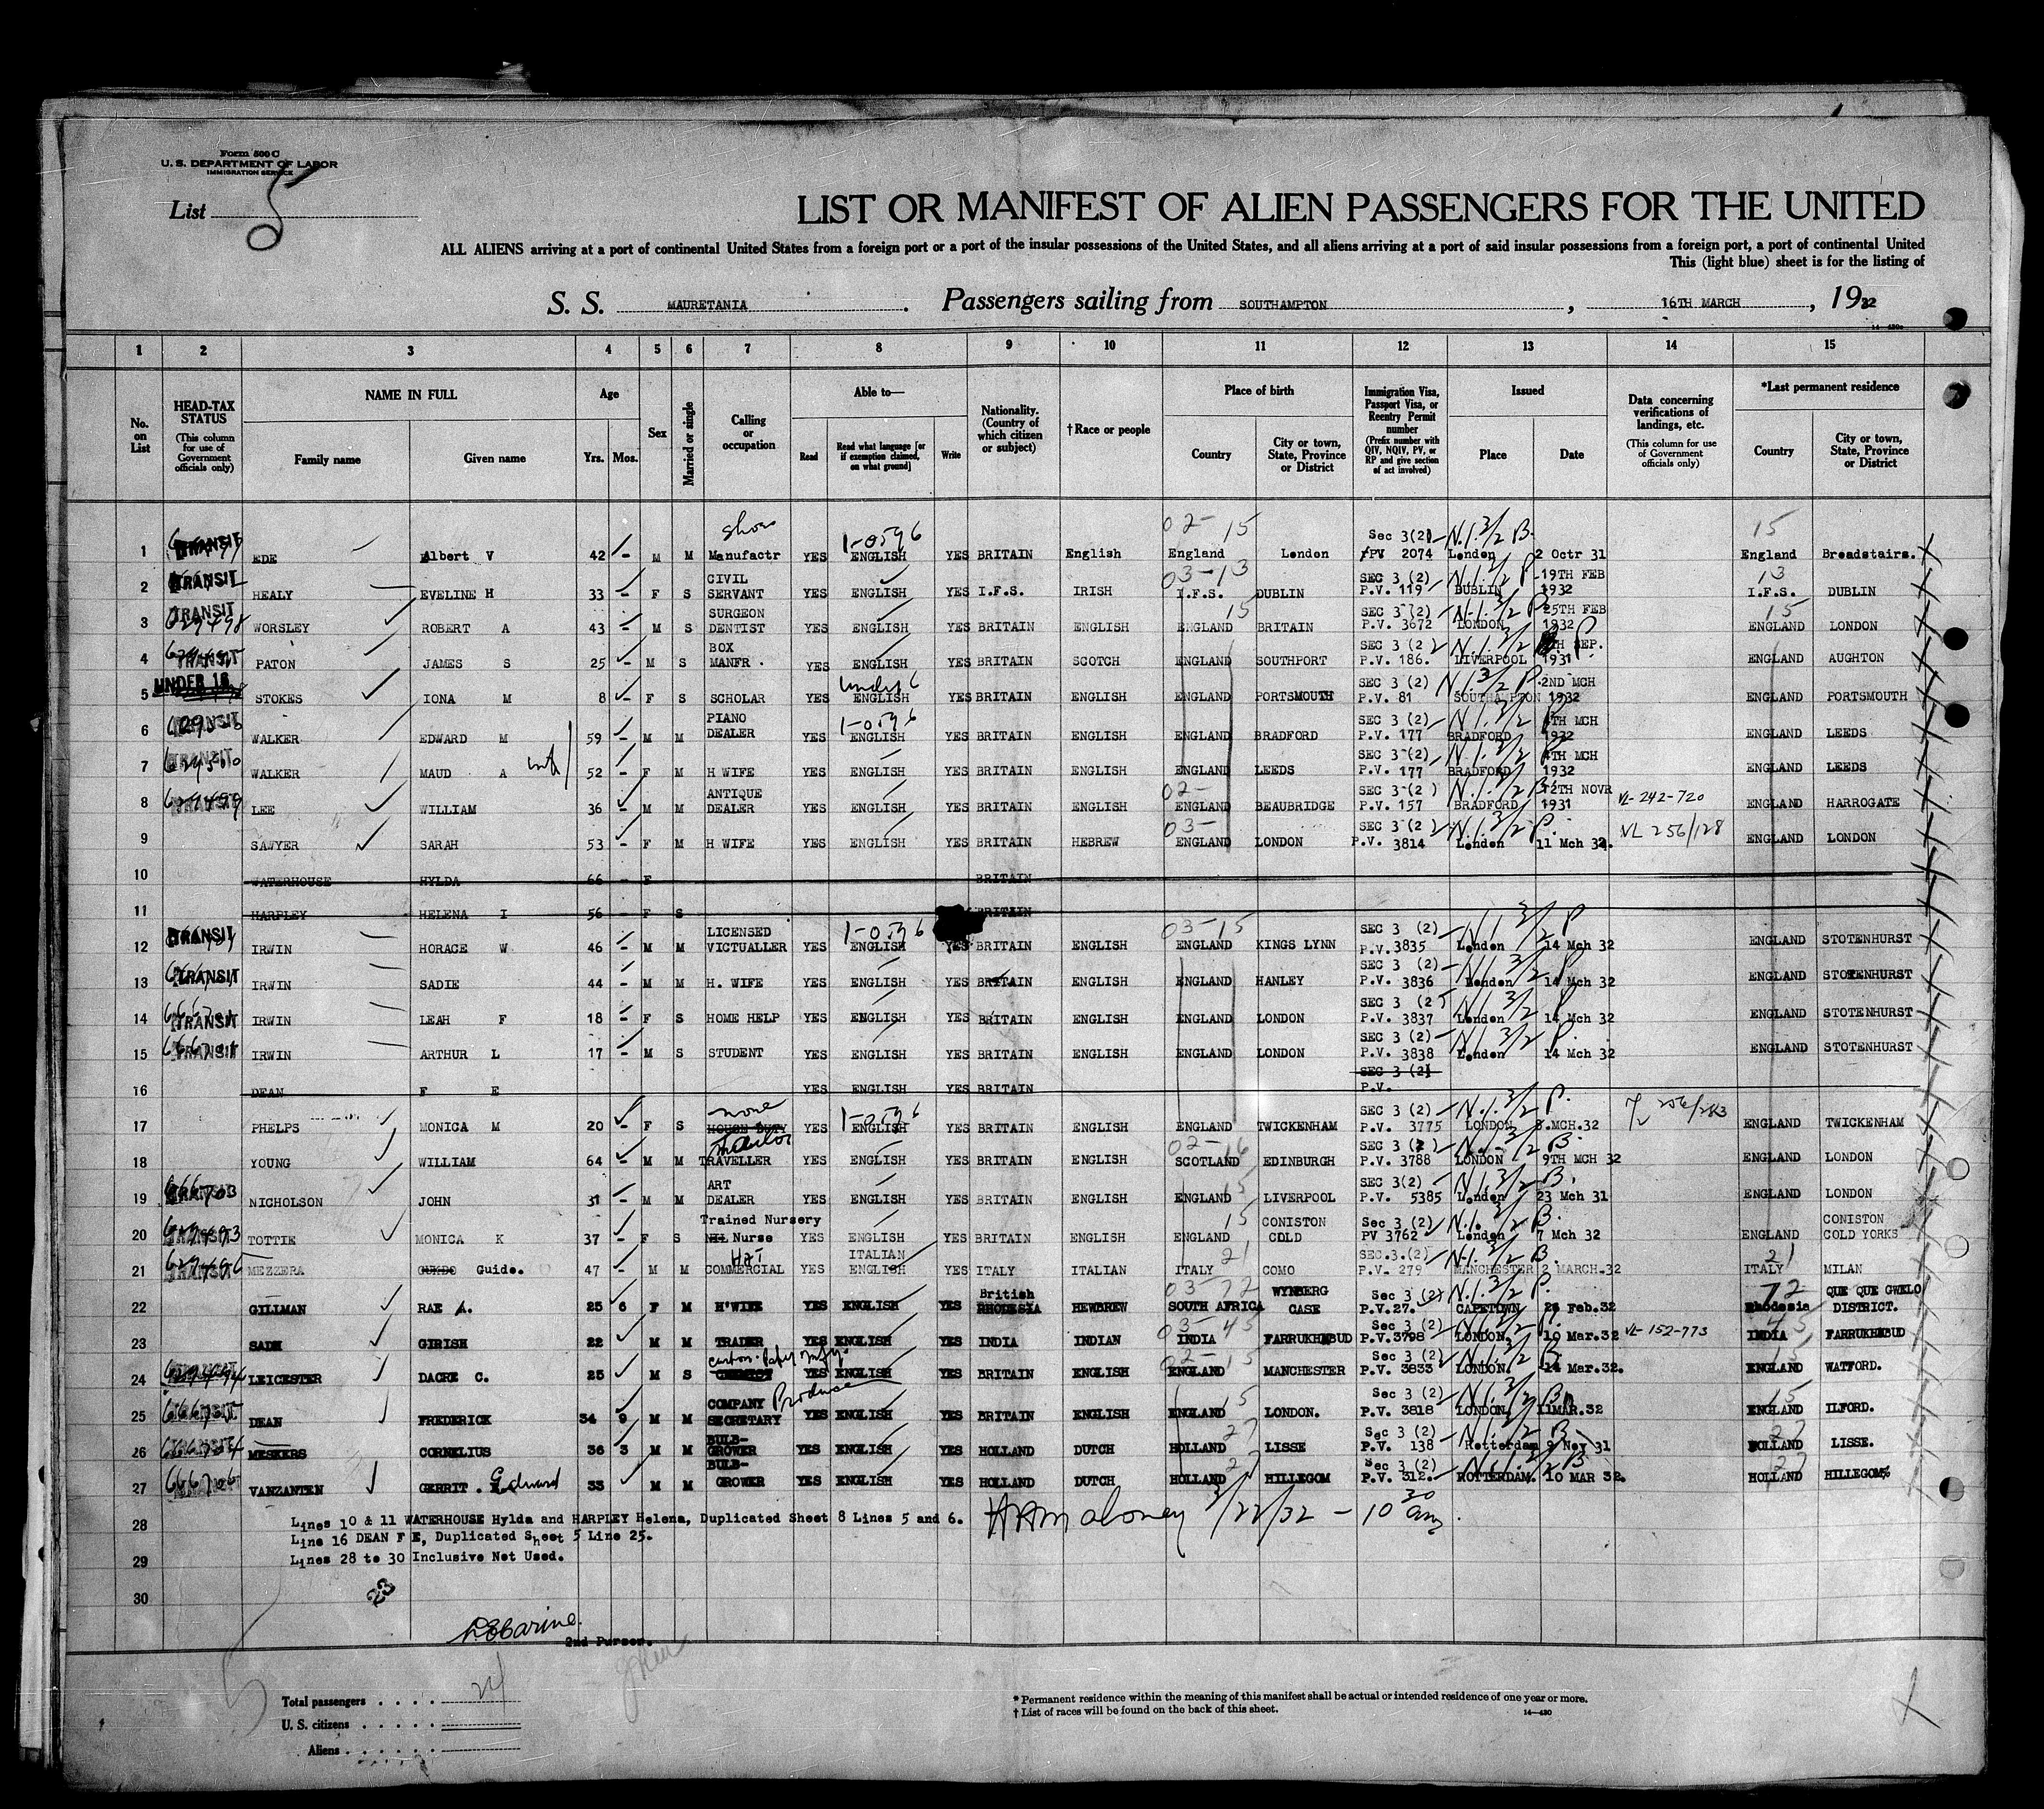 Form 500 C
U. S. DEPARTMENT OF LABOR
IMMIGRATION SERVICE
List 5
LIST OR MANIFEST OF ALIEN PASSENGERS FOR THE UNITED
ALL ALIENS arriving at a port of continental United States from a foreign port or a port of the insular possessions of the United States, and all aliens arriving at a port of said insular possessions from a foreign port, a port of continental United
This (light blue) sheet is for the listing of
S. S. MAURETANIA. Passengers sailing from SOUTHAMPTON, 16TH MARCH, 1932
14—430
1 2 3 4 5 6 7 8 9 10 11 12 13 14 15
No. on List
HEAD-TAX STATUS (This column for use of Government officials only)
NAME IN FULL Family name Given name
Age Yrs. Mos.
Sex
Married or single
Calling or occupation
Able to— Read Read what language [or if exemption claimed, on what ground] Write
Nationality. (Country of which citizen or subject)
†Race or people
Place of birth Country City or town, State, Province or District
Immigration Visa, Passport Visa, or Reentry Permit number (Prefix number with QIV, NQIV, PV, or RP and give section of act involved)
Issued Place Date
Data concerning verifications of landings, etc. (This column for use of Government officials only)
*Last permanent residence Country City or town, State, Province or District
1 TRANSIT EDE Albert V 42 - M M Shoe Manufactr YES ENGLISH YES BRITAIN English England London Sec 3(2) PV 2074 London 2 Octr 31 England Broadstairs.
2 TRANSIT HEALY EVELINE H 33 - F S CIVIL SERVANT YES ENGLISH YES I.F.S. IRISH I.F.S. DUBLIN SEC 3 (2) P.V. 119 DUBLIN 19TH FEB 1932 I.F.S. DUBLIN
3 TRANSIT WORSLEY ROBERT A 43 - M S SURGEON DENTIST YES ENGLISH YES BRITAIN ENGLISH ENGLAND BRITAIN SEC 3 (2) P.V. 3672 LONDON 25TH FEB 1932 ENGLAND LONDON
4 TRANSIT PATON JAMES S 25 - M S BOX MANFR. YES ENGLISH YES BRITAIN SCOTCH ENGLAND SOUTHPORT SEC 3 (2) P.V. 186. LIVERPOOL SEP. 1931 ENGLAND AUGHTON
5 UNDER 16 STOKES IONA M 8 - F S SCHOLAR YES under 16 ENGLISH YES BRITAIN ENGLISH ENGLAND PORTSMOUTH SEC 3 (2) P.V. 81 SOUTHAMPTON 2ND MCH 1932 ENGLAND PORTSMOUTH
6 TRANSIT WALKER EDWARD M 59 - M M PIANO DEALER YES ENGLISH YES BRITAIN ENGLISH ENGLAND BRADFORD SEC 3 (2) P.V. 177 BRADFORD 4TH MCH 1932 ENGLAND LEEDS
7 TRANSIT WALKER MAUD A with 52 - F M H WIFE YES ENGLISH YES BRITAIN ENGLISH ENGLAND LEEDS SEC 3 (2) P.V. 177 BRADFORD 4TH MCH 1932 ENGLAND LEEDS
8 TRANSIT LEE WILLIAM 36 - M M ANTIQUE DEALER YES ENGLISH YES BRITAIN ENGLISH ENGLAND BEAUBRIDGE SEC 3 (2) P.V. 157 BRADFORD 12TH NOVR 1931 VL-242-720 ENGLAND HARROGATE
9 SAWYER SARAH 53 - F M H WIFE YES ENGLISH YES BRITAIN HEBREW ENGLAND LONDON SEC 3 (2) P.V. 3814 London 11 Mch 32. VL 256/128 ENGLAND LONDON
10 WATERHOUSE HYLDA 66 - F BRITAIN
11 HARPLEY HELENA I 56 - F S BRITAIN
12 TRANSIT IRWIN HORACE W 46 - M M LICENSED VICTUALLER YES ENGLISH YES BRITAIN ENGLISH ENGLAND KINGS LYNN SEC 3 (2) P.V. 3835 London 14 Mch 32 ENGLAND STOTENHURST
13 TRANSIT IRWIN SADIE 44 - M M H. WIFE YES ENGLISH YES BRITAIN ENGLISH ENGLAND HANLEY SEC 3 (2) P.V. 3836 London 14 Mch 32 ENGLAND STOTENHURST
14 TRANSIT IRWIN LEAH F 18 - F S HOME HELP YES ENGLISH YES BRITAIN ENGLISH ENGLAND LONDON SEC 3 (2) P.V. 3837 London 14 Mch 32 ENGLAND STOTENHURST
15 TRANSIT IRWIN ARTHUR L 17 - M S STUDENT YES ENGLISH YES BRITAIN ENGLISH ENGLAND LONDON SEC 3 (2) P.V. 3838 London 14 Mch 32 ENGLAND STOTENHURST
16 DEAN F E YES ENGLISH YES BRITAIN SEC 3 (2) P.V.
17 PHELPS MONICA M 20 - F S none HOUSE DUTY YES ENGLISH YES BRITAIN ENGLISH ENGLAND TWICKENHAM SEC 3 (2) P.V. 3775 LONDON 8.MCH.32 ENGLAND TWICKENHAM
18 YOUNG WILLIAM 64 - M M Tailor TRAVELLER YES ENGLISH YES BRITAIN ENGLISH SCOTLAND EDINBURGH SEC 3 (2) P.V. 3788 LONDON 9TH MCH 32 ENGLAND LONDON
19 TRANSIT NICHOLSON JOHN 31 - M M ART DEALER YES ENGLISH YES BRITAIN ENGLISH ENGLAND LIVERPOOL SEC 3(2) P.V. 5385 London 23 Mch 31 ENGLAND LONDON
20 TRANSIT TOTTIE MONICA K 37 - F S Trained Nursery Nurse YES ENGLISH YES BRITAIN ENGLISH ENGLAND CONISTON COLD Sec 3 (2) PV 3762 London 7 Mch 32 ENGLAND CONISTON COLD YORKS
21 TRANSIT MEZZERA GUIDO Guide. 47 - M M HAT COMMERCIAL YES ITALIAN ENGLISH YES ITALY ITALIAN ITALY COMO SEC.3.(2) P.V. 279 MANCHESTER 2 MARCH.32 ITALY MILAN
22 GILLMAN RAE A. 25 6 F M H'WIFE YES ENGLISH YES British RHODESIA HEWBREW SOUTH AFRICA WYNBERG CASE Sec 3 (2) P.V.27. CAPETOWN Feb.32 Rhodesia QUE QUE GWELO DISTRICT.
23 SADH GIRISH 22 M M TRADER YES ENGLISH YES INDIA INDIAN INDIA FARRUKHABUD Sec 3 (2) P.V.3798 LONDON. 10 Mar.32 VL-152-773 INDIA FARRUKHABUD
24 LEICESTER DACRE C. 25 M S CHEMIST YES ENGLISH YES BRITAIN ENGLISH ENGLAND MANCHESTER Sec 3 (2) P.V. 3833 LONDON. 14 Mar.32. ENGLAND WATFORD.
25 DEAN FREDERICK 34 9 M M COMPANY SECRETARY Produce YES ENGLISH YES BRITAIN ENGLISH ENGLAND LONDON. Sec 3 (2) P.V. 3818 LONDON. 11MAR.32 ENGLAND ILFORD.
26 MESKERS CORNELIUS 36 3 M M BULB-GROWER YES ENGLISH YES HOLLAND DUTCH HOLLAND LISSE Sec 3 (2) P.V. 138 Rotterdam 9 Nov 31 HOLLAND LISSE.
27 VANZANTEN GERRIT. Edward 33 M M BULB-GROWER YES ENGLISH YES HOLLAND DUTCH HOLLAND HILLEGOM Sec 3 (2) P.V. 312. ROTTERDAM. 10 MAR 32. HOLLAND HILLEGOM
28 Lines 10 & 11 WATERHOUSE Hylda and HARPLEY Helena, Duplicated Sheet 8 Lines 5 and 6. Maloney 3/22/32 - 10 30 am.
Line 16 DEAN F E, Duplicated Sheet 5 Line 25.
29 Lines 28 to 30 Inclusive Not Used.
23
30
2nd Purser.
Total passengers . . . . 24
U. S. citizens . . . . .
Aliens . . . . . .
* Permanent residence within the meaning of this manifest shall be actual or intended residence of one year or more.
† List of races will be found on the back of this sheet.
14—430